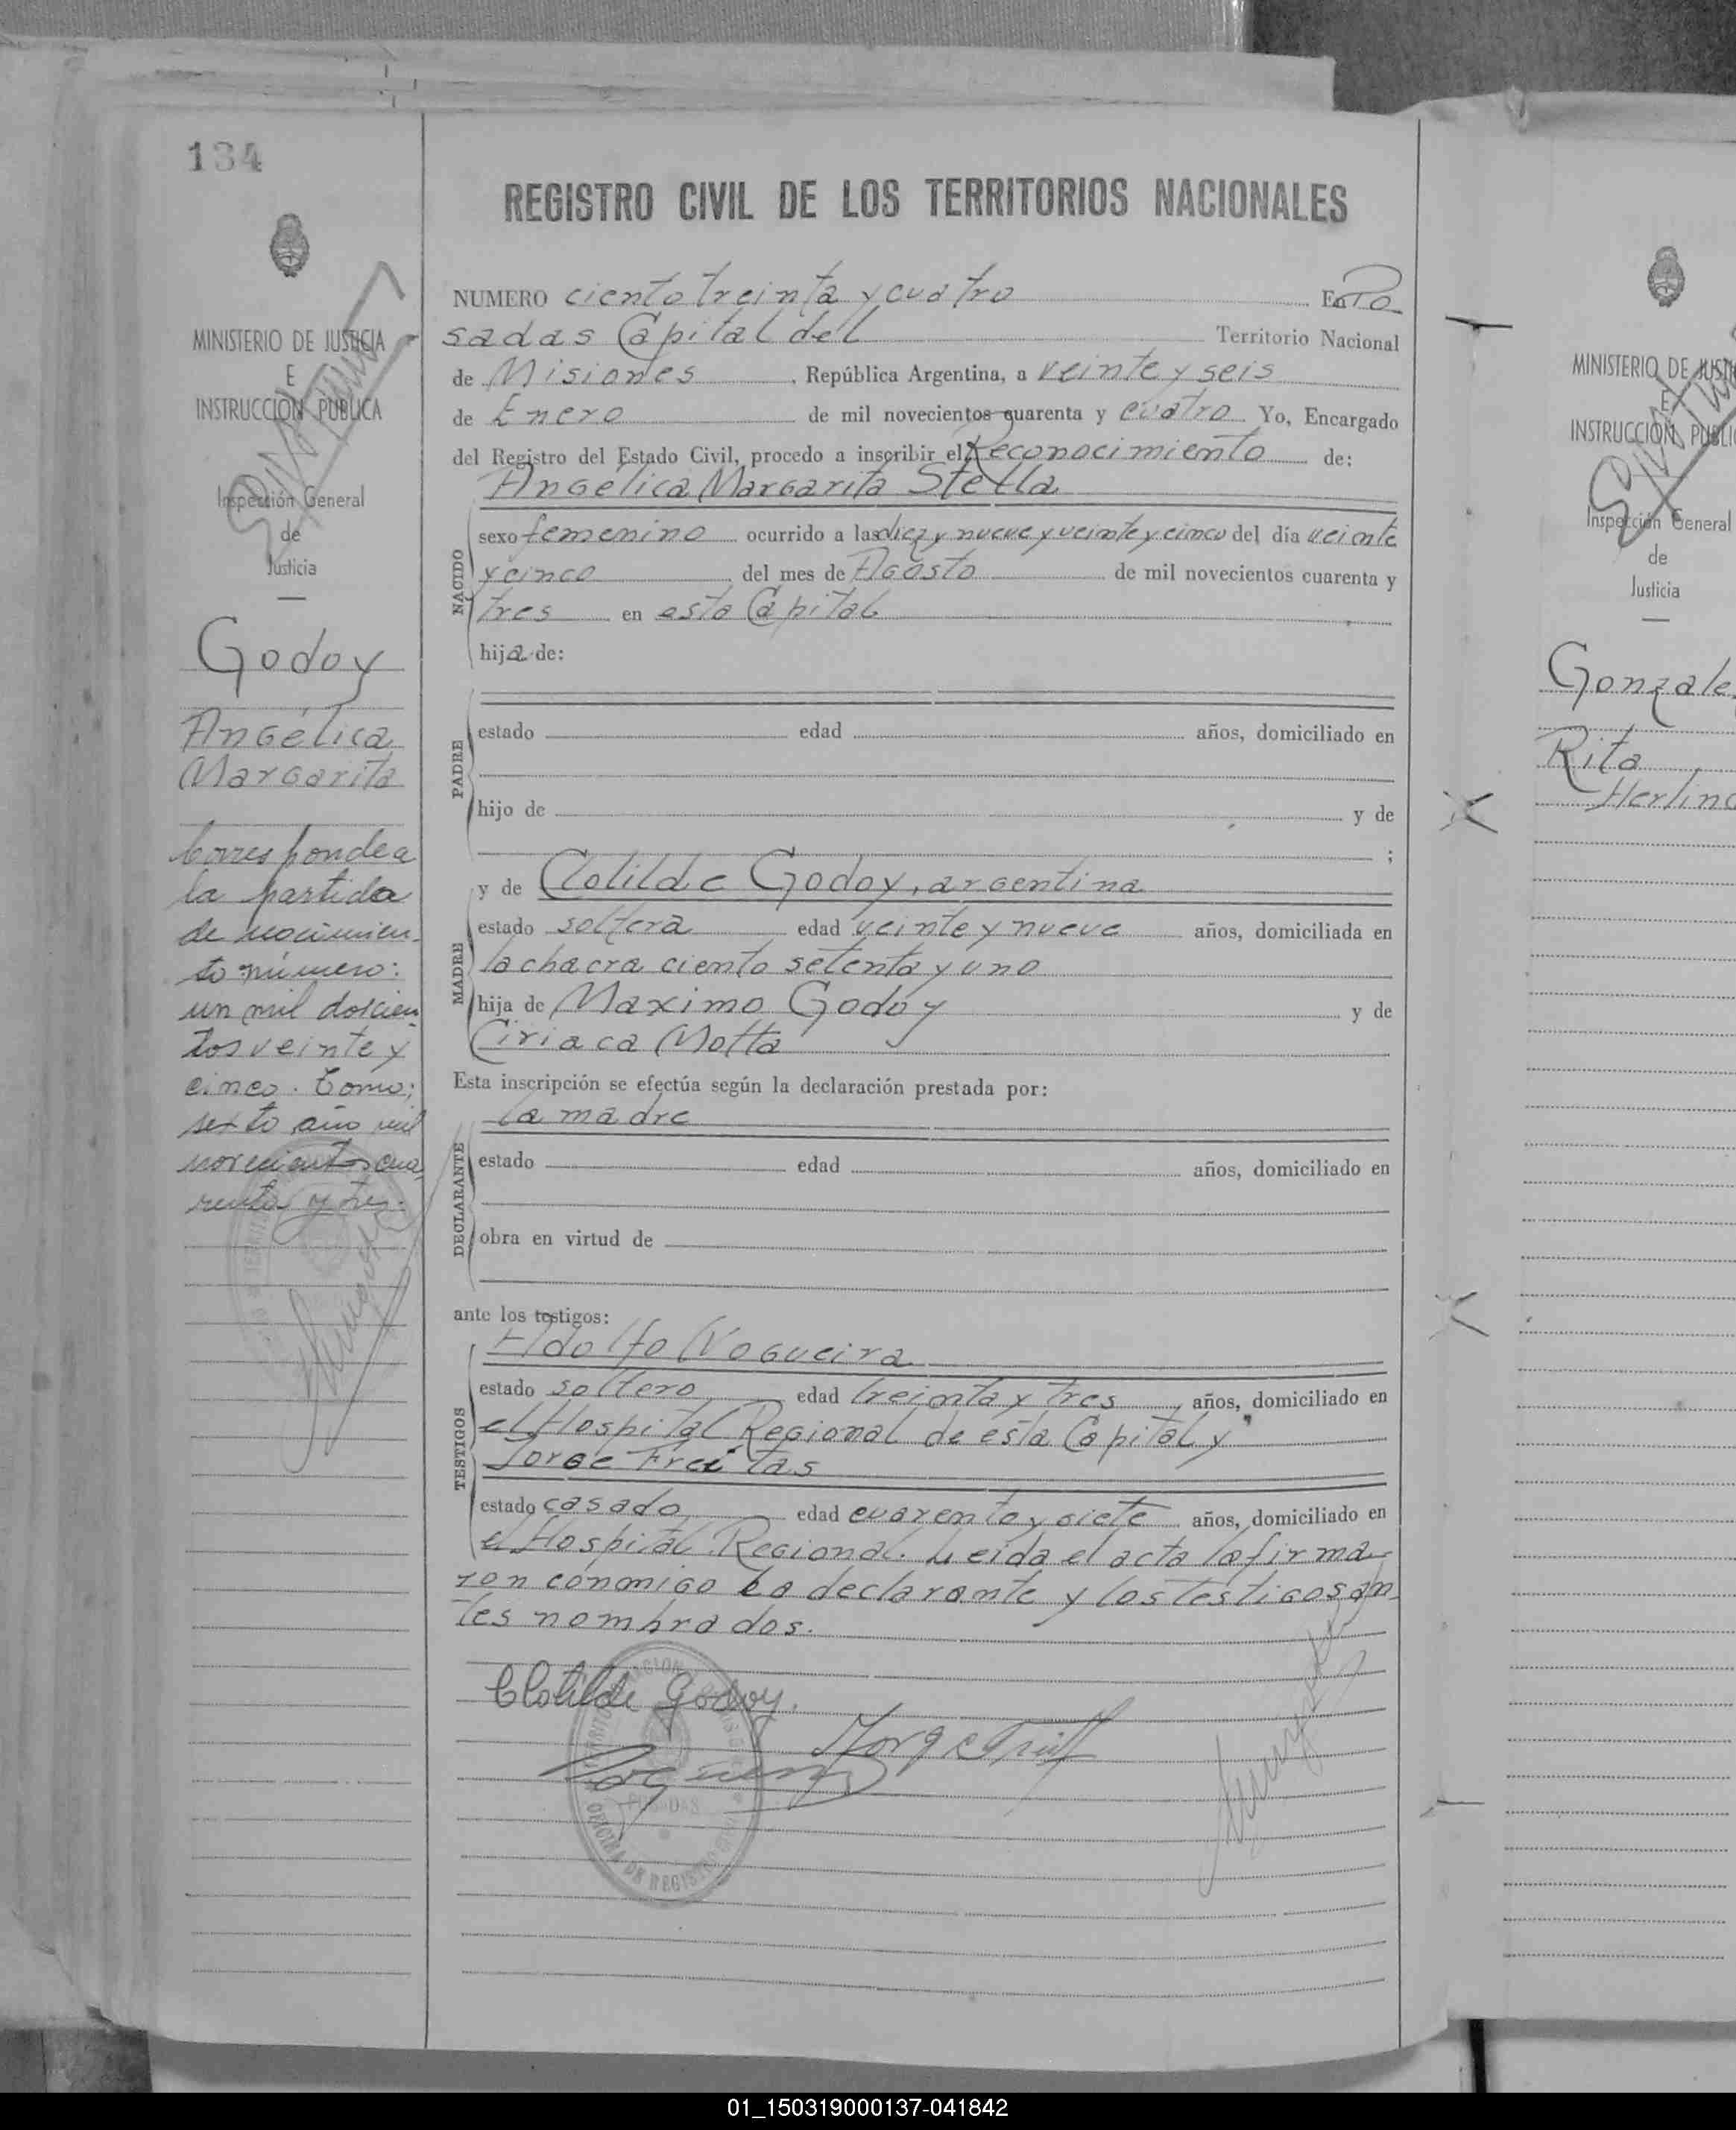 134
MINISTERIO DE JUSTICIA
E
INSTRUCCIÓN PÚBLICA
Inspección General
de
Justicia
Godoy
Angélica
Margarita
Corresponde a
la partida
de nacimien-
to número:
un mil doscien-
tos veinte y
cinco. Tomo:
sexto año mil
novecientos cua
renta y tres.
REGISTRO CIVIL DE LOS TERRITORIOS NACIONALES
NUMERO ciento treinta y cuatro En Po
sadas Capital del Territorio Nacional
de Misiones, República Argentina, a veinte y seis
de Enero de mil novecientos cuarenta y cuatro Yo, Encargado
del Registro del Estado Civil, procedo a inscribir el Reconocimiento de:
Angélica Margarita Stella
NACIDO
sexo femenino ocurrido a las diez y nueve y veinte y cinco del día veinte
y cinco del mes de Agosto de mil novecientos cuarenta y
tres en esta Capital
hija de:
PADRE
estado edad años, domiciliado en
hijo de y de
;
y de Clotilde Godoy, argentina
MADRE
estado soltera edad veinte y nueve años, domiciliada en
la chacra ciento setenta y uno
hija de Maximo Godoy y de
Ciriaca Motta
Esta inscripción se efectúa según la declaración prestada por:
la madre
DECLARANTE
estado edad años, domiciliado en
obra en virtud de
ante los testigos:
Adolfo Nogueira
TESTIGOS
estado soltero edad treinta y tres años, domiciliado en
el Hospital Regional de esta Capital y
Jorge Freitas
estado casado edad cuarenta y siete años, domiciliado en
el Hospital Regional. Leida el acta la firma-
ron conmigo la declarante y los testigos an-
tes nombrados.
Clotilde Godoy.
POSADAS
OFICINA DE REGISTRO
MINISTERIO DE
E
INSTRUCCIÓN
Inspección General
de
Justicia
Rita
01_150319000137-041842